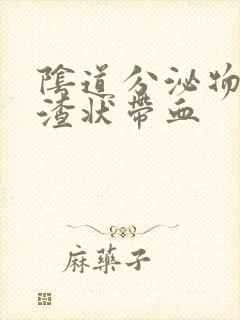 陰道分泌物
渣狀帶血
麻藥子